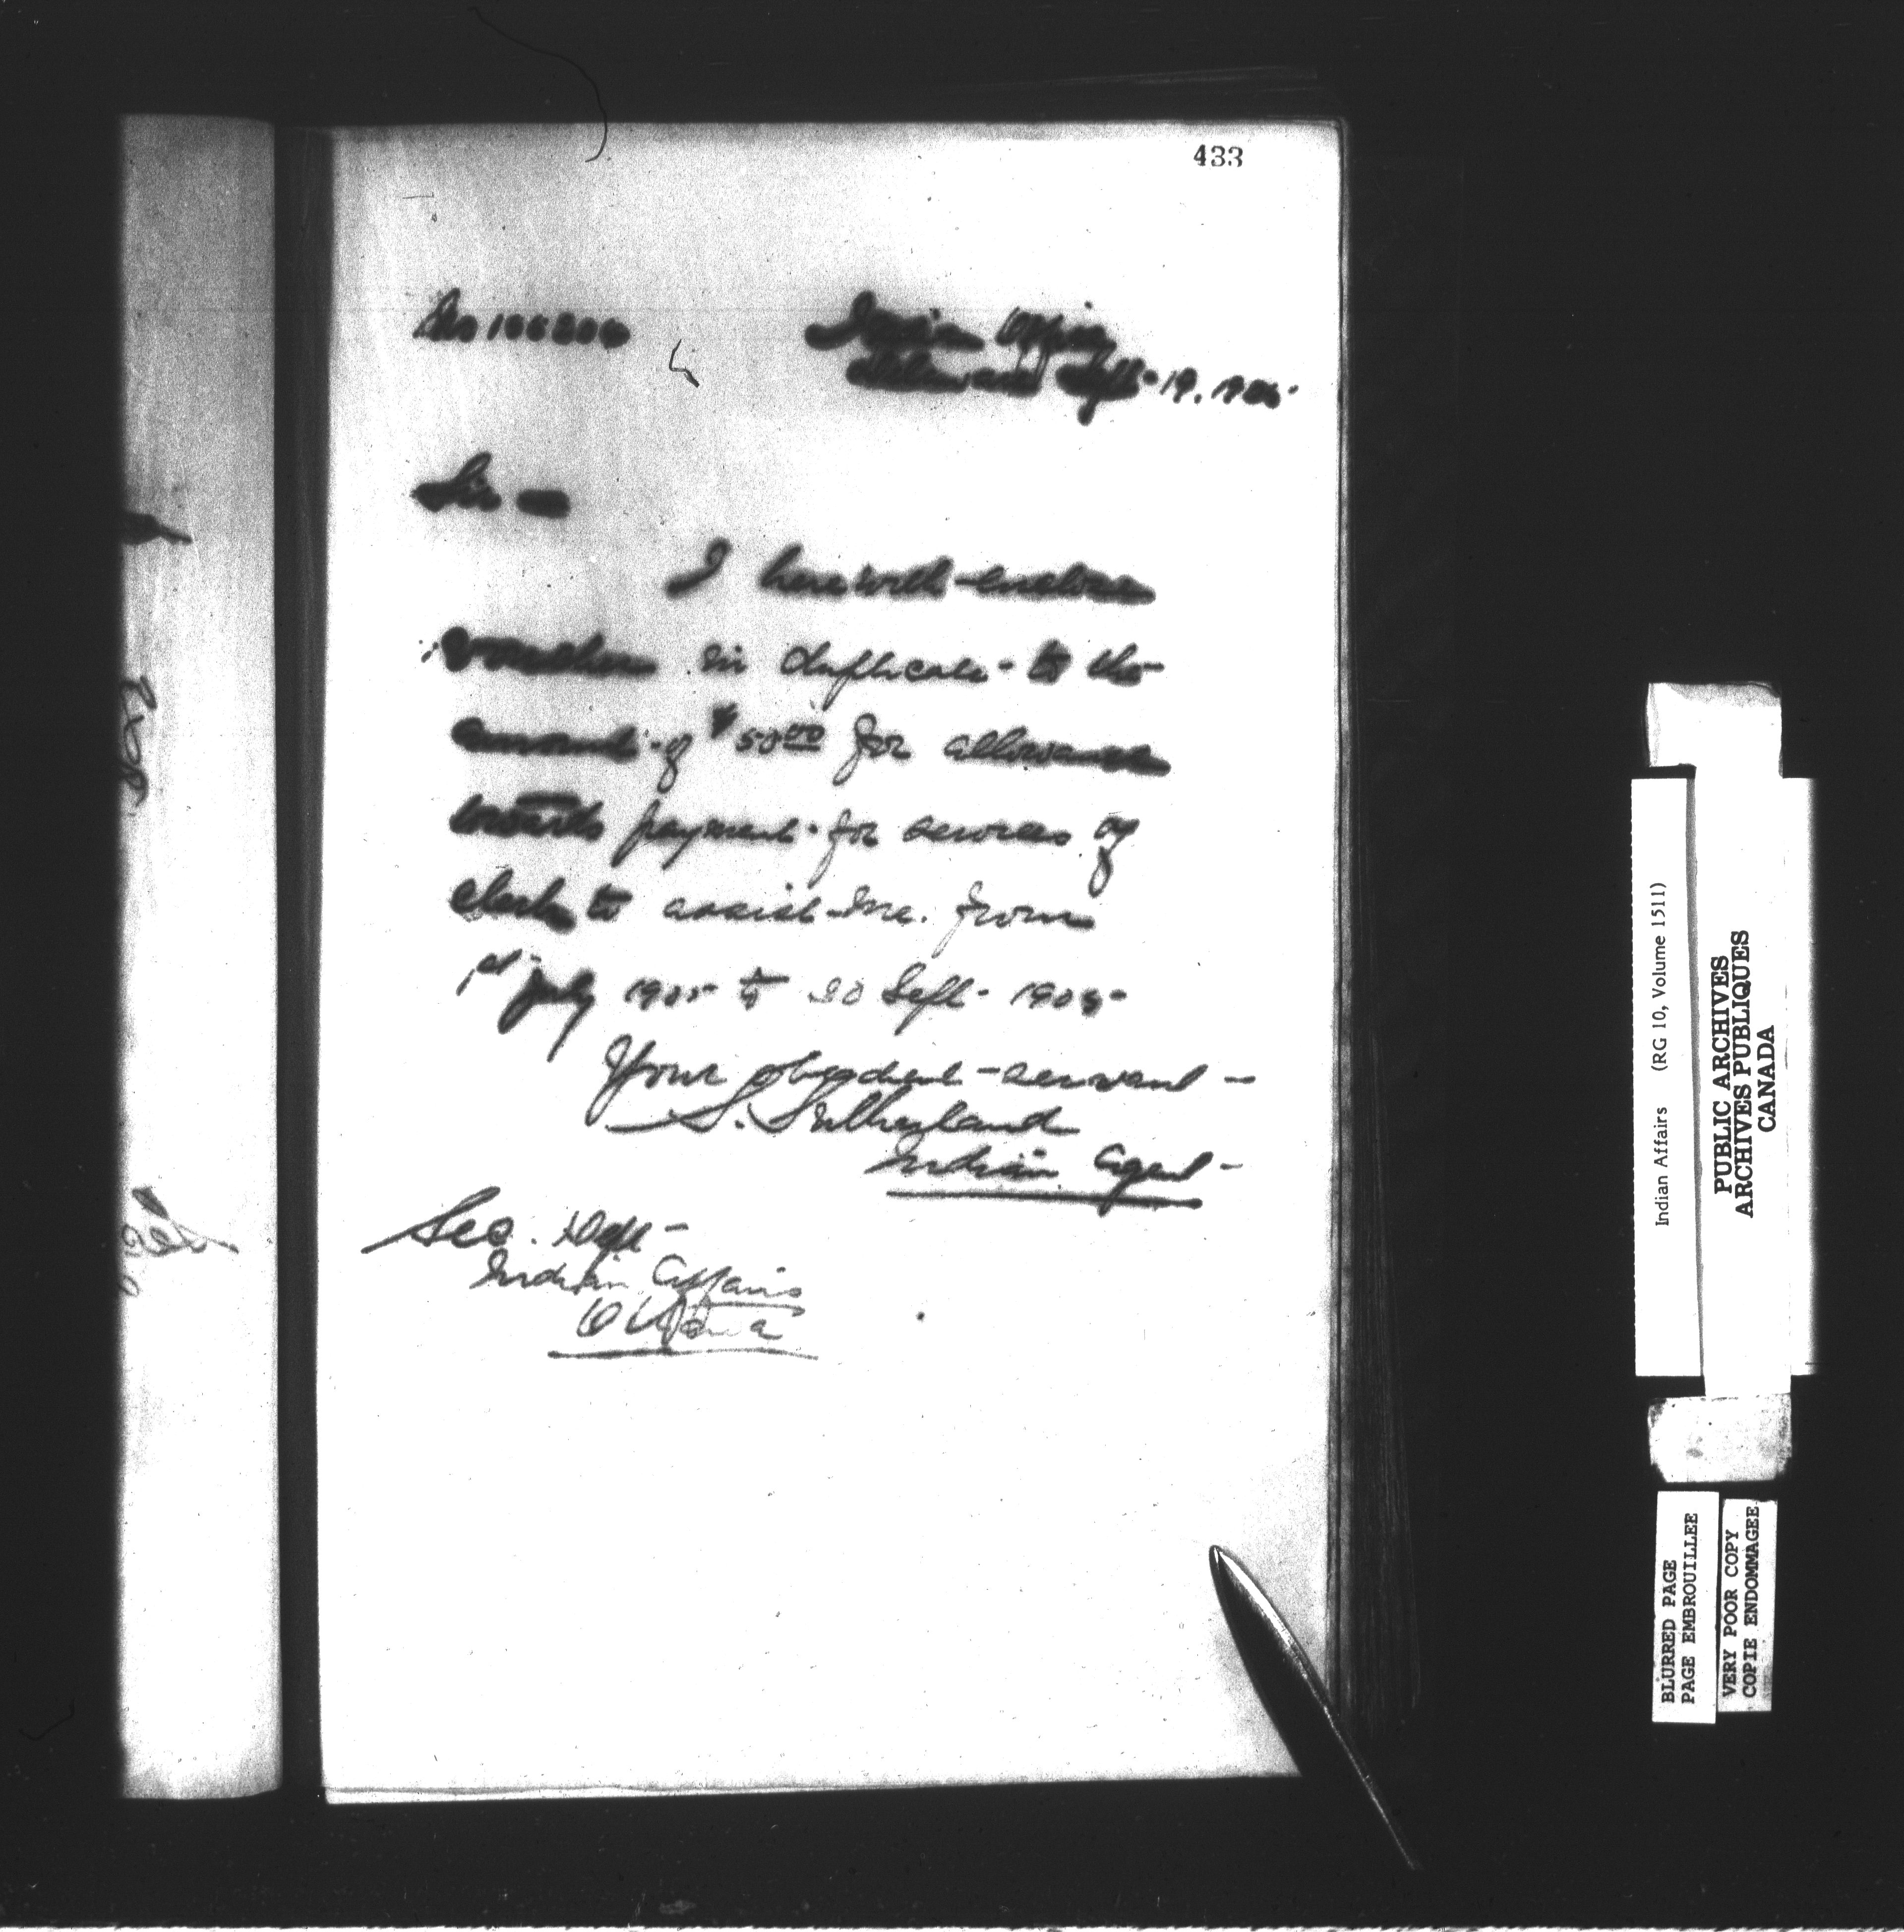 433
No 106206
Indian Office
Delaware Sept 19. 1905
Sir
I herewith enclose
voucher in duplicate to the
amount of $50.00 for allowance
towards payment for services of
clerk to assist me. from
1st July 1905 to 30 Sept 1905
Your obedient servant
S. Sutherland
Indian Agent
Sec. Dept
Indian Affairs
Ottawa
Indian Affairs (RG 10, Volume 1511)
PUBLIC ARCHIVES
ARCHIVES PUBLIQUES
CANADA
BLURRED PAGE
PAGE EMBROUILLEE
VERY POOR COPY
COPIE ENDOMMAGEE